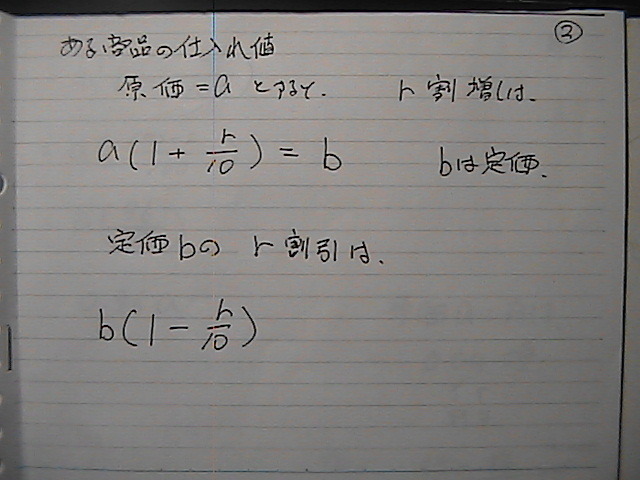 ②
ある部品の仕入れ値
原価=aとすると、 r割増しは、
a(1+r/10)=b bは定価、
定価bの r割引は、
b(1-r/10)